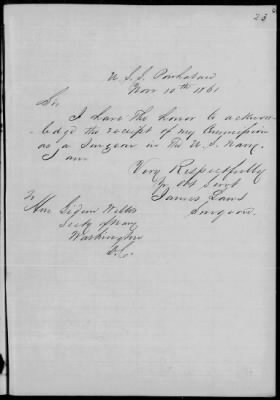 23
U.S.S. Powhatan
Nov 10th 1861
Sir
I have the honor to acknow-
ledge the receipt of my Commission
as a Surgeon in the U.S. Navy.
I am
Very Respectfully
Yr Obt Servt
James Laws
Surgeon.
To
Hon Gideon Welles
Secty of Navy
Washington
D.C.